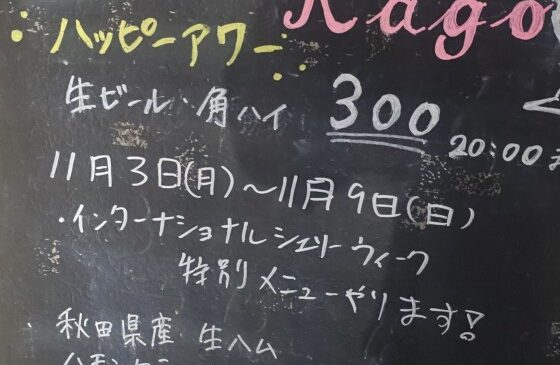 Kago
ハッピーアワー
生ビール・角ハイ 300 20:00ま
11月3日(月)〜11月9日(日)
・インターナショナルシェリーウィーク
特別メニューやります!
・秋田県産 生ハム